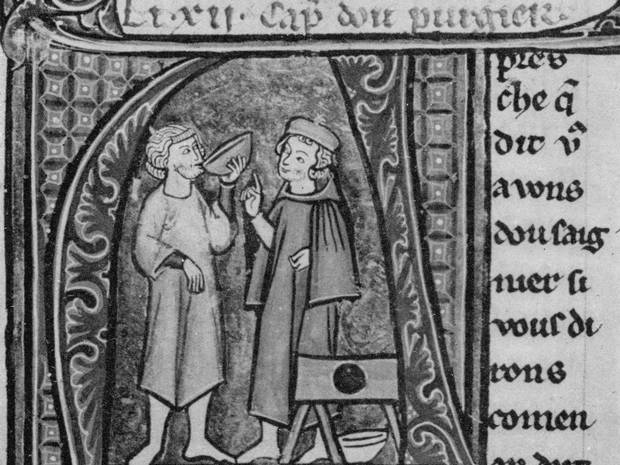 Li·xii· Cap̄ doit purgier
pres
che q̄
dit v̄
avons
dou saig
nier si
vous di
rons
comen